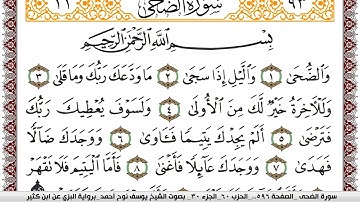 ١١ سُورَةُ الضُّحَىٰ ٩٣
بِسْمِ اللَّهِ الرَّحْمَٰنِ الرَّحِيمِ
وَالضُّحَىٰ ١ وَالَّيْلِ إِذَا سَجَىٰ ٢ مَا وَدَّعَكَ رَبُّكَ وَمَا قَلَىٰ ٣
وَلَلْآخِرَةُ خَيْرٌ لَّكَ مِنَ الْأُولَىٰ ٤ وَلَسَوْفَ يُعْطِيكَ رَبُّكَ
فَتَرْضَىٰ ٥ أَلَمْ يَجِدْكَ يَتِيمًا فَـَٔاوَىٰ ٦ وَوَجَدَكَ ضَالًّا
فَهَدَىٰ ٧ وَوَجَدَكَ عَآئِلًا فَأَغْنَىٰ ٨ فَأَمَّا الْيَتِيمَ فَلَا تَقْهَرْ
سورة الضحى الصفحة ٥٩٦. الحزب ٦٠ الجزء ٣٠ بصوت الشيخ يوسف نوح أحمد برواية البزي عن ابن كثير